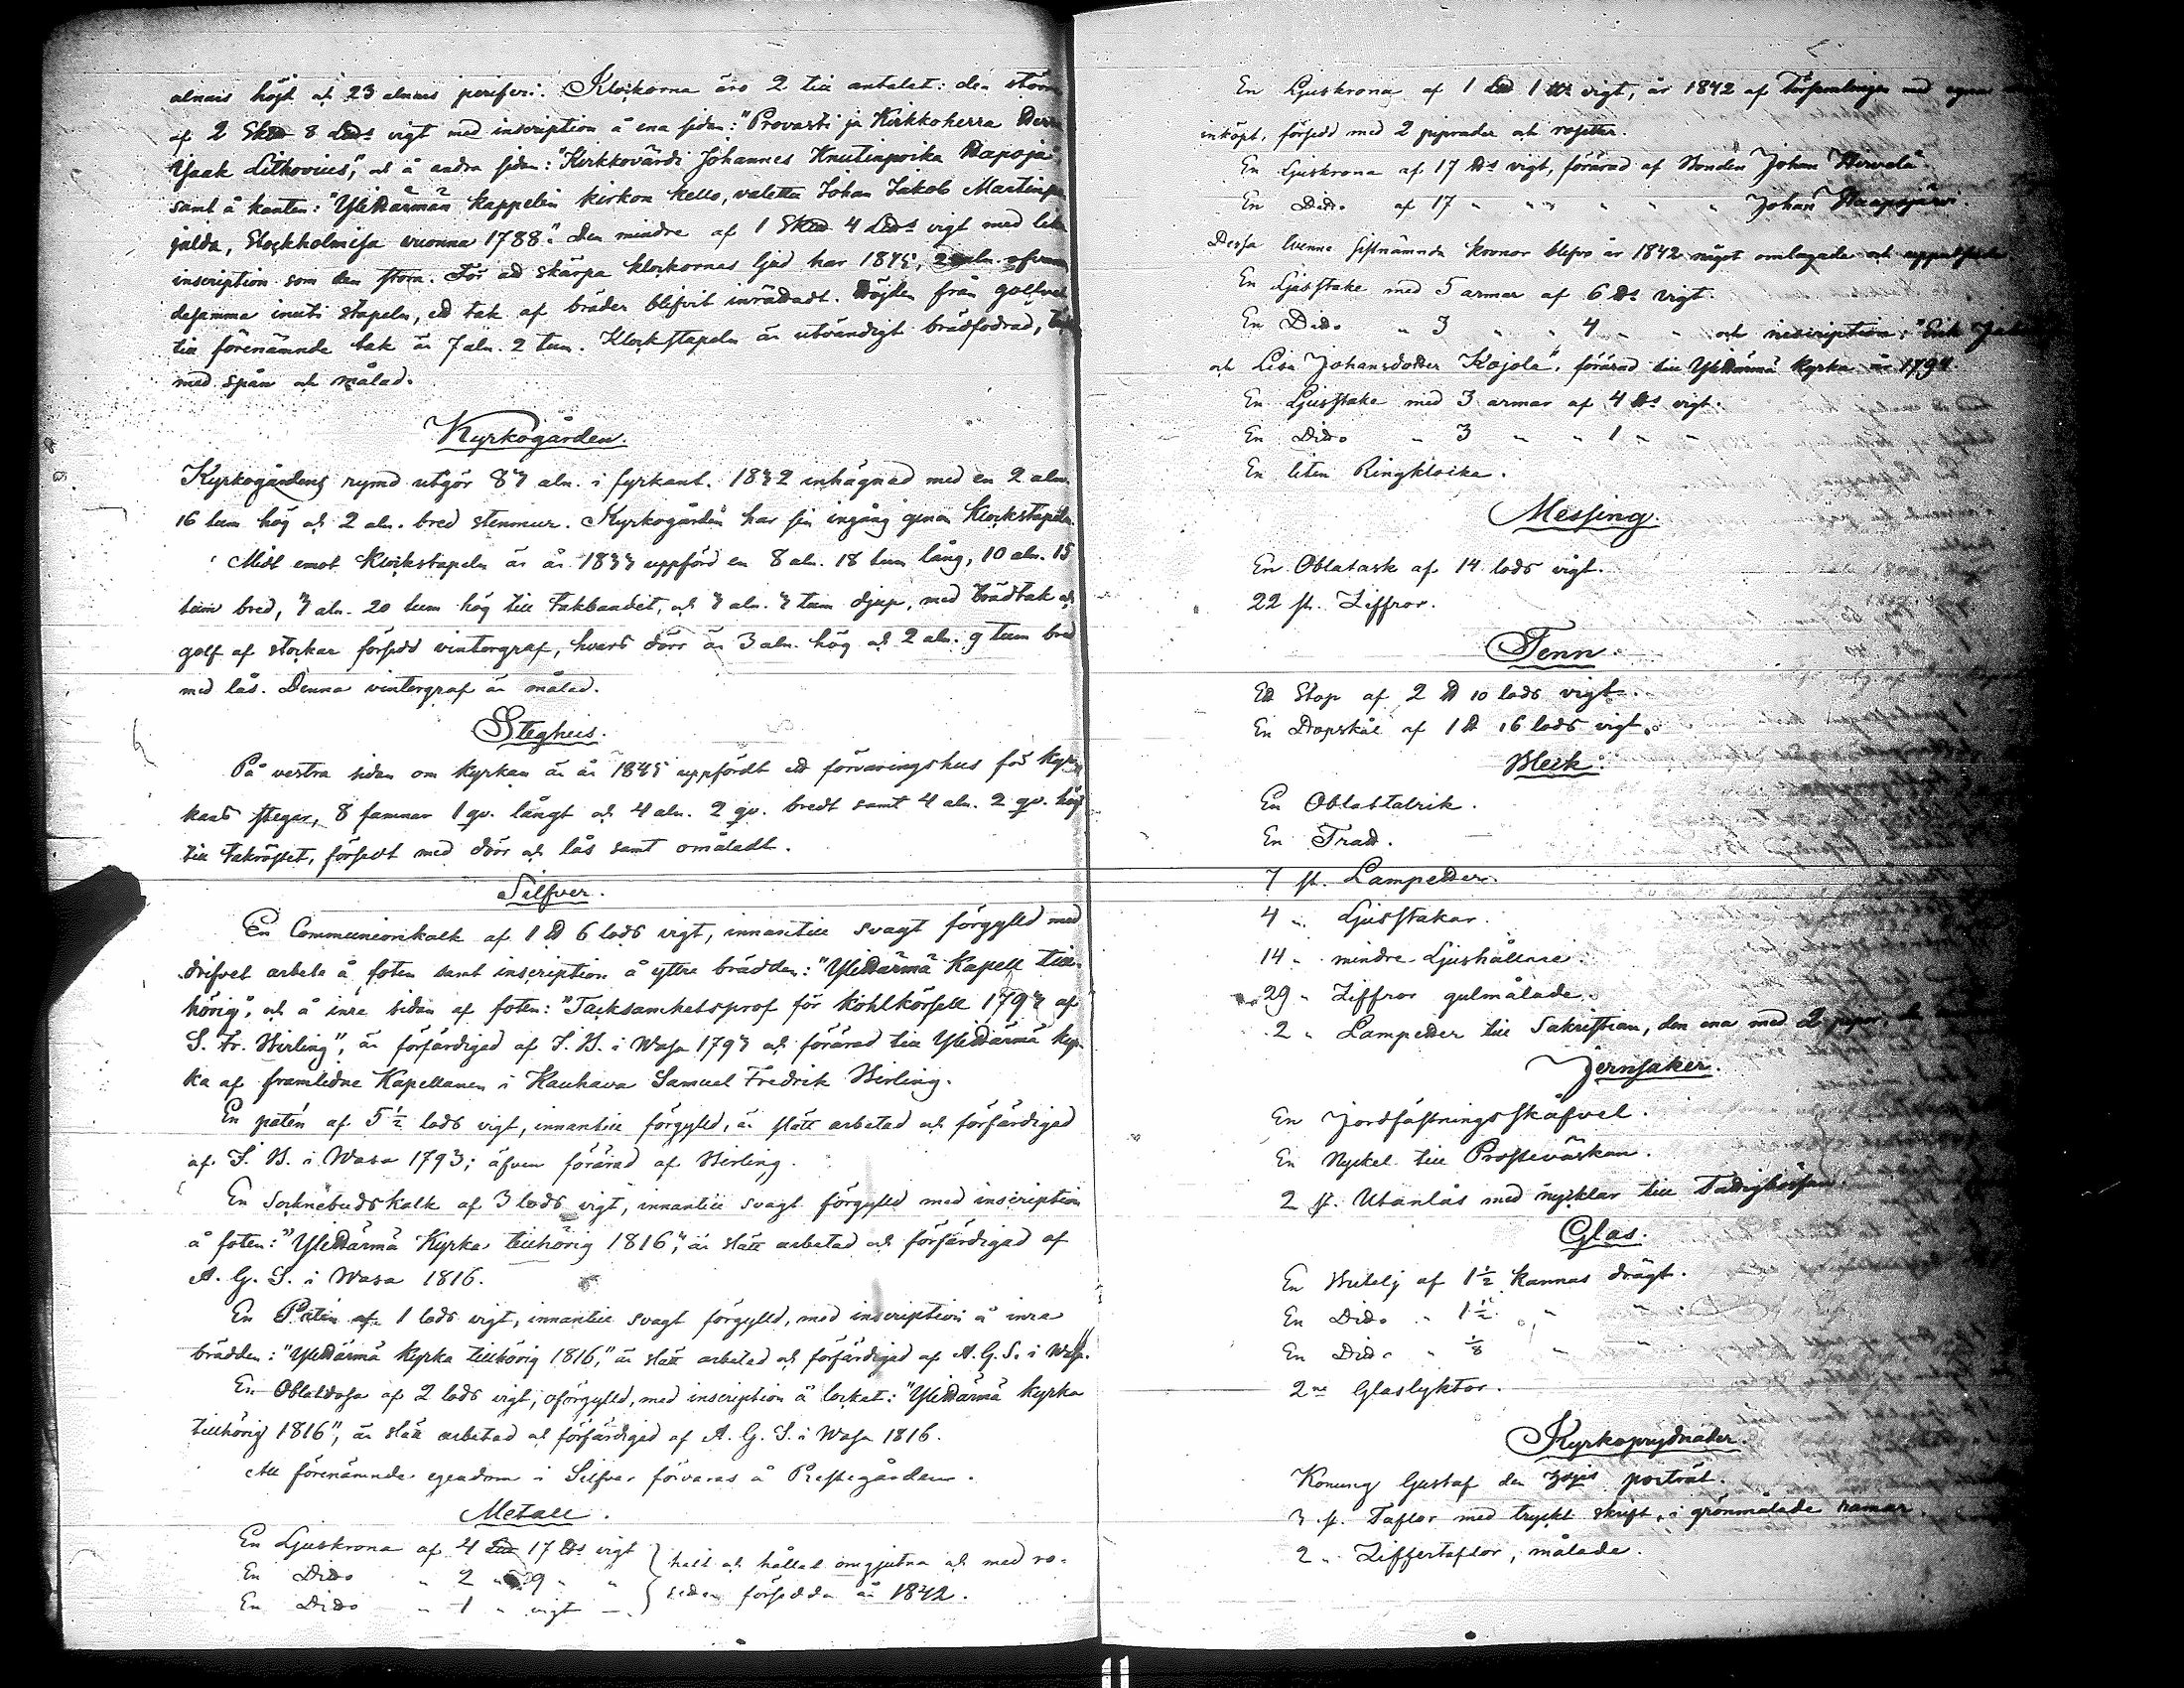 alnars höjd och 23 alnars periferi. Klockorna äro 2 till antalet: den större
af 2 Sk℔ 8 L℔s vigt med inscription å ena sidan: "Provasti ja Kirkkoherra Herra
Isaak Lithovius", och å andra sidan: "Kirkkovärdi Johannes Knutinpoika Haapoja"
samt å kanten: "Ylihärmän kappelin kirkon kello, valettu Johan Jakob Martinpo
jalda, Stockholmisa vuonna 1788." Den mindre af 1 Sk℔ 4 L℔s vigt med lika
inscription som den stora. För att skärpa klockornas ljud har 1845, 2 aln. ofvan
desamma inuti stapeln, ett tak af bräder blifvit inrättadt. Höjden från golfvet
till förenämnde tak är 7 aln. 2 tum. Klockstapeln är utvändigt brädfodrad,
med spån och målad.
Kyrkogården.
Kyrkogårdens rymd utgör 83 aln. i fyrkant. 1832 inhägnad med en 2 aln.
16 tum hög och 2 aln. bred stenmur. Kyrkogården har sin ingång genom Klockstapeln.
Midt emot Klockstapeln är år 1833 uppförd en 8 aln. 18 tum lång, 10 aln. 15
tum bred, 3 aln. 20 tum hög till takbandet, och 3 aln. 3 tum djup, med brädtak och
golf af stockar försedd vintergraf, hvars dörr är 3 aln. hög och 2 aln. 9 tum bred
med lås. Denna vintergraf är målad.
Steghus.
På vestra sidan om kyrkan är år 1845 uppfördt ett förvaringshus för kyr
kans stegar, 8 famnar 1 qv. långt och 4 aln. 2 qv. bredt samt 4 aln. 2 qv. högt
till takröstet, försedt med dörr och lås samt omåladt.
Silfver.
En Communionkalk af 1 ℔ 6 lods vigt, innantill svagt förgylld med
drifvet arbete å foten samt inscription å yttre brädden: "Ylihärmä Kapell till-
hörig", och å inre sidan af foten: "Tacksamhetsprof för kohlkörsell 1793 af
S. Fr. Hirling", är förfärdigad af I. H. i Wasa 1793 och förärad till Ylihärmä kyr-
ka af framlidne Kapellanen i Kauhava Samuel Fredrik Hirling.
En patén af 5½ lods vigt, innantill förgylld, är slätt arbetad och förfärdigad
af I. H. i Wasa 1793; äfven förärad af Hirling.
En Socknebudskalk af 3 lods vigt, innantill svagt förgylld med inscription
å foten: "Ylihärmä Kyrka tillhörig 1816", är slätt arbetad och förfärdigad af
A. G. S. i Wasa 1816.
En Patén af 1 lods vigt, innantill svagt förgylld, med inscription å inra
brädden: "Ylihärmä kyrka tillhörig 1816," är slätt arbetad och förfärdigad af A. G. S. i Wasa.
En Oblatdosa af 2 lods vigt, oförgylld, med inscription å locket: "Ylihärmä kyrka
tillhörig 1816", är slätt arbetad och förfärdigad af A. G. S. i Wasa 1816.
All förenämnde egendom i Silfver förvaras å Prestegården.
Metall.
En Ljuskrona af 4 L℔ 17 ℔s vigt } helt och hållet omgjutna och med ro-
En Ditto " 2 " 9 " "
En Ditto " 1 " vigt — } setter försedda år 1842.
En Ljuskrona af 1 L℔ 1 ℔s vigt, år 1842 af Församlingen med egna
inköpt, försedd med 2 piprader och rosetter.
En Ljuskrona af 17 ℔s vigt, förärad af Bonden Johan Hervelä.
En Ditto af 17 " " " " " Johan Haapojärvi.
Dessa tvenne sistnämnda kronor blefvo år 1842 något omlagade och uppputsade
En Ljusstake med 5 armar af 6 ℔s vigt.
En Ditto " 3 " " 4 " " och inscription: "Erik
och Lisa Johansdotter Kojola", förärad till Ylihärmä kyrka år 1794.
En Ljusstake med 3 armar af 4 ℔s vigt.
En Ditto " 3 " " 1 " "
En liten Ringklocka.
Messing.
En Oblatask af 14 lods vigt.
22 st. Ziffror.
Tenn.
Ett Stop af 2 ℔ 10 lods vigt.
En Dopskål af 1 ℔ 16 lods vigt.
Bleck.
En Oblattalrik.
En Tratt.
7 st. Lampetter.
4 " Ljusstakar.
14 " mindre Ljushållare.
29 " Ziffror gulmålade.
2 " Lampetter till Sakristian, den ena med 2 pipor,
Jernsaker.
En Jordfästningsskåfvel.
En Nyckel till Prosteväskan.
2 st. Utanlås med nycklar till Fattigbössan.
Glas.
En Butelj af 1½ kannas drägt.
En Ditto " 1½ " "
En Ditto " ⅛ " "
2ne Glaslyktor.
Kyrkoprydnader.
Konung Gustaf den 3djes porträt.
3 st. Taflor med tryckt skrift, i grönmålade ramar.
2 " Ziffertaflor, målade.